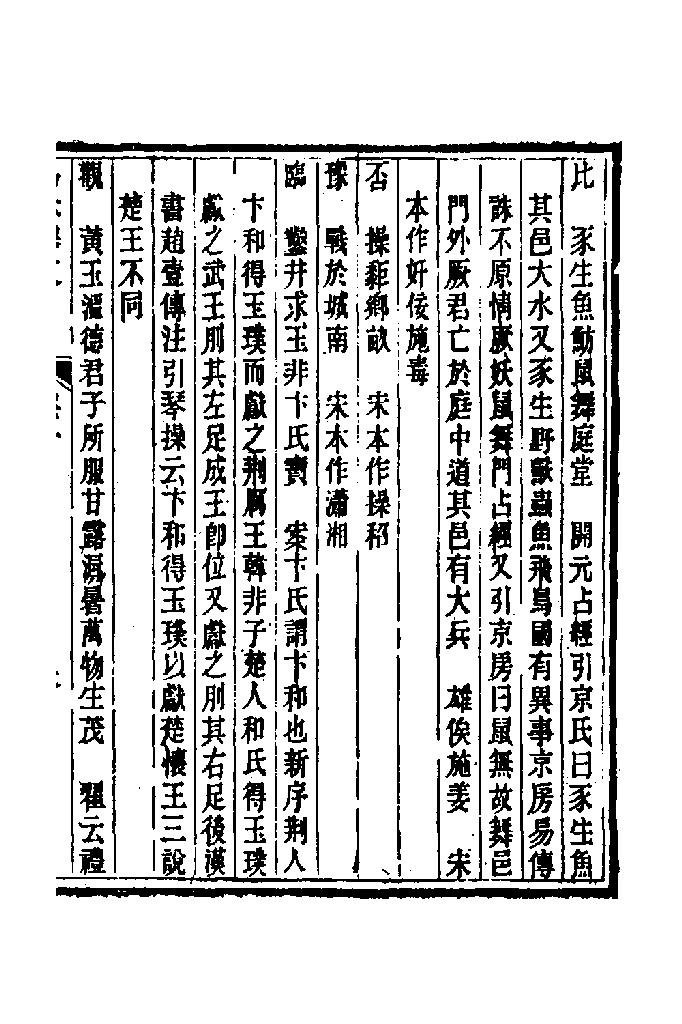 比　豕生魚魴鼠舞庭堂　開元占經引京氏曰豕生魚
其邑大水又豕生野獸蟲魚飛鳥國有異事京房易傳
誅不原情厥妖鼠舞門占經又引京房曰鼠無故舞邑
門外厥君亡於庭中道其邑有大兵　雄俟施姜　宋
本作奸佞施毒
否　操秬鄉畝　宋本作操稆
豫　戰於城南　宋本作瀟湘
臨　鑿井求玉非卞氏寶　案卞氏謂卞和也新序荆人
卞和得玉璞而獻之荆厲王韓非子楚人和氏得玉璞
獻之武王刖其左足成王卽位又獻之刖其右足後漢
書趙壹傳注引琴操云卞和得玉璞以獻楚懷王三說
楚王不同
觀　黃玉溫德君子所服甘露溽暑萬物生茂　翟云禮